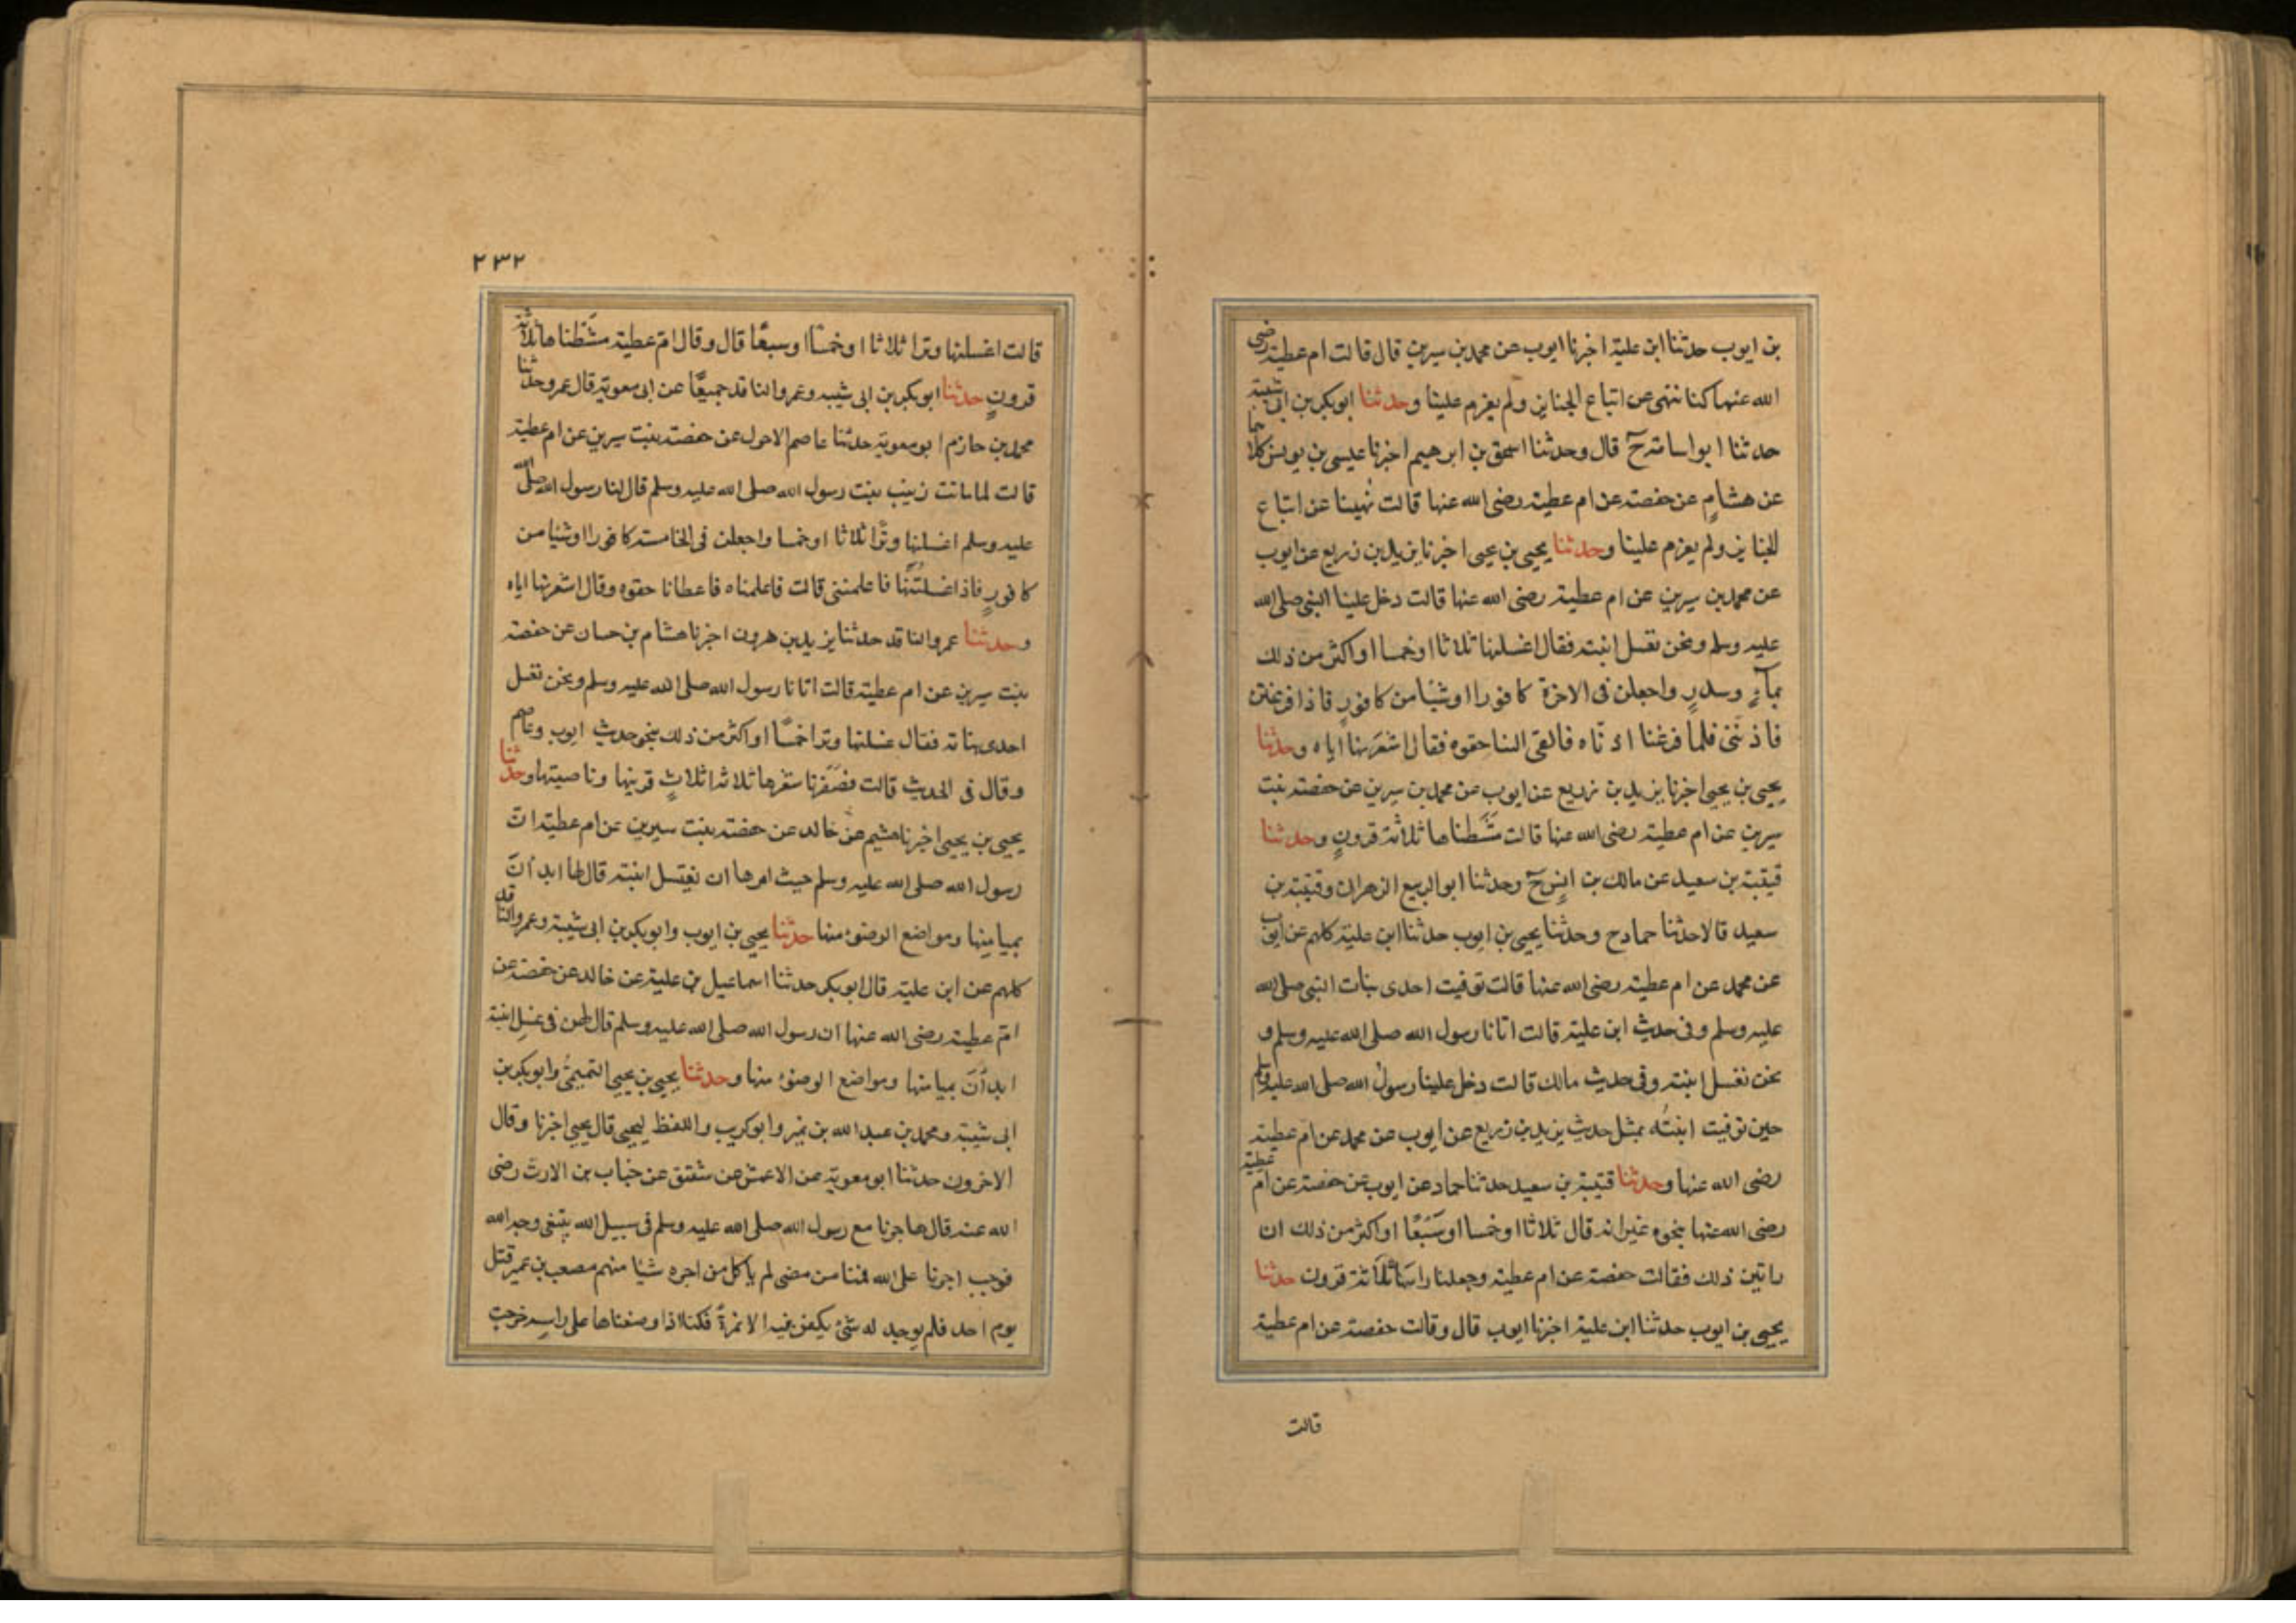 بن ايوب حدثنا ابن علية اخبرنا ايوب عن محمد بن سيرين قال قالت ام عطية رضى
الله عنها كنا ننهى عن اتباع الجنايز ولم يعزم علينا وحدثنا ابو بكر بن ابى شيبة
حدثنا ابو اسامة ح قال وحدثنا اسحق بن ابرهيم اخبرنا عيسى بن يونس كلاهما
عن هشام عن حفصة عن ام عطية رضى الله عنها قالت نُهينا عن اتباع
الجنايز ولم يعزم علينا وحدثنا يحيى بن يحيى اخبرنا يزيد بن زريع عن ايوب
عن محمد بن سيرين عن ام عطية رضى الله عنها قالت دخل علينا النبى صلى الله
عليه وسلم ونحن نغسل ابنته فقال اغسلنها ثلاثا او خمسا او اكثر من ذلك
بماءٍ وسدرٍ واجعلن فى الاخرة كافورا او شيئا من كافورٍ فاذا فرغتن
فاذننى فلما فرغنا اذناه فالقى الينا حقوه فقال اشعرنها اياه وحدثنا
يحيى بن يحيى اخبرنا يزيد بن زريع عن ايوب عن محمد بن سيرين عن حفصة بنت
سيرين عن ام عطية رضى الله عنها قالت مَشَطناها ثلاثة قرونٍ وحدثنا
قتيبة بن سعيد عن مالك بن انسٍ ح وحدثنا ابو الربيع الزهرانى وقتيبة بن
سعيد قالا حدثنا حماد ح وحدثنا يحيى بن ايوب حدثنا ابن علية كلهم عن ايوب
عن محمد عن ام عطية رضى الله عنها قالت توفيت احدى بنات النبى صلى الله
عليه وسلم وفى حديث ابن علية قالت اتانا رسول الله صلى الله عليه وسلم و
نحن نغسل ابنته وفى حديث مالك قالت دخل علينا رسول الله صلى الله عليه وسلم
حين توفيت ابنتُه بمثل حديث يزيد بن زريع عن ايوب عن محمد عن ام عطية
رضى الله عنها وحدثنا قتيبة بن سعيد حدثنا حماد عن ايوب عن حفصة عن ام عطية
رضى الله عنها بنحوه غير انه قال ثلاثا او خمسا او سَبْعًا او اكثر من ذلك ان
راتين ذلك فقالت حفصة عن ام عطية وجعلنا راسها ثلاثة قرون حدثنا
يحيى بن ايوب حدثنا ابن علية اخبرنا ايوب قال وقالت حفصة عن ام عطية
قالت
٢٣٢
قالت اغسلنها وترا ثلاثا او خمسًا او سبعًا قال وقال ام عطية مشَطناها ثلاثة
قرونٍ حدثنا ابو بكر بن ابى شيبه وعمرو الناقد جميعًا عن ابى معوية قال عمرو حدثنا
محمد بن حازم ابو معوية حدثنا عاصم الاحول عن حفصة بنت سيرين عن ام عطية
قالت لما ماتت زينب بنت رسول الله صلى الله عليه وسلم قال لنا رسول الله صلى الله
عليه وسلم اغسلنها وترًا ثلاثا او خمسا واجعلن فى الخامسة كافورا او شيئا من
كافورٍ فاذا غسلتُنَّها فاعلمننى قالت فاعلمناه فاعطانا حقوه وقال اشعرنها اياه
وحدثنا عمرو الناقد حدثنا يزيد بن هرون اخبرنا هشام بن حسان عن حفصة
بنت سيرين عن ام عطية قالت اتانا رسول الله صلى الله عليه وسلم ونحن نغسل
احدى بناته فقال غسلنها وترا خمسًا او اكثر من ذلك بنحو حديث ايوب وعاصم
وقال فى الحديث قالت فضفَرنا شعرها ثلاثة اثلاثٍ قرينها وناصيتها وحدثنا
يحيى بن يحيى اخبرنا هشيم عن خالد عن حفصة بنت سيرين عن ام عطية ان
رسول الله صلى الله عليه وسلم حيث امرها ان تغتسل ابنته قال لها ابدأنَ
بميامنها ومواضع الوضوء منها حدثنا يحيى بن ايوب وابو بكر بن ابى شيبة وعمرو الناقد
كلهم عن ابن علية قال ابو بكر حدثنا اسماعيل بن علية عن خالد عن حفصة عن
ام عطية رضى الله عنها ان رسول الله صلى الله عليه وسلم قال لهن فى غسل ابنته
ابدأنَ بميامنها ومواضع الوضوء منها وحدثنا يحيى بن يحيى التميمىُّ وابو بكر بن
ابى شيبة ومحمد بن عبد الله بن نمير وابو كريب واللفظ ليحيى قال يحيى اخبرنا وقال
الاخرون حدثنا ابو معوية عن الاعمش عن شقيق عن خباب بن الارت رضى
الله عنه قال هاجرنا مع رسول الله صلى الله عليه وسلم فى سبيل الله يبتغى وجه الله
فوجب اجرنا على الله فمنا من مضى لم ياكل من اجره شيئا منهم مصعب بن عمير قتل
يوم احد فلم يوجد له شىء يكفن فيه الا نمرةً فكنا اذا وضعناها على راسه خرجت